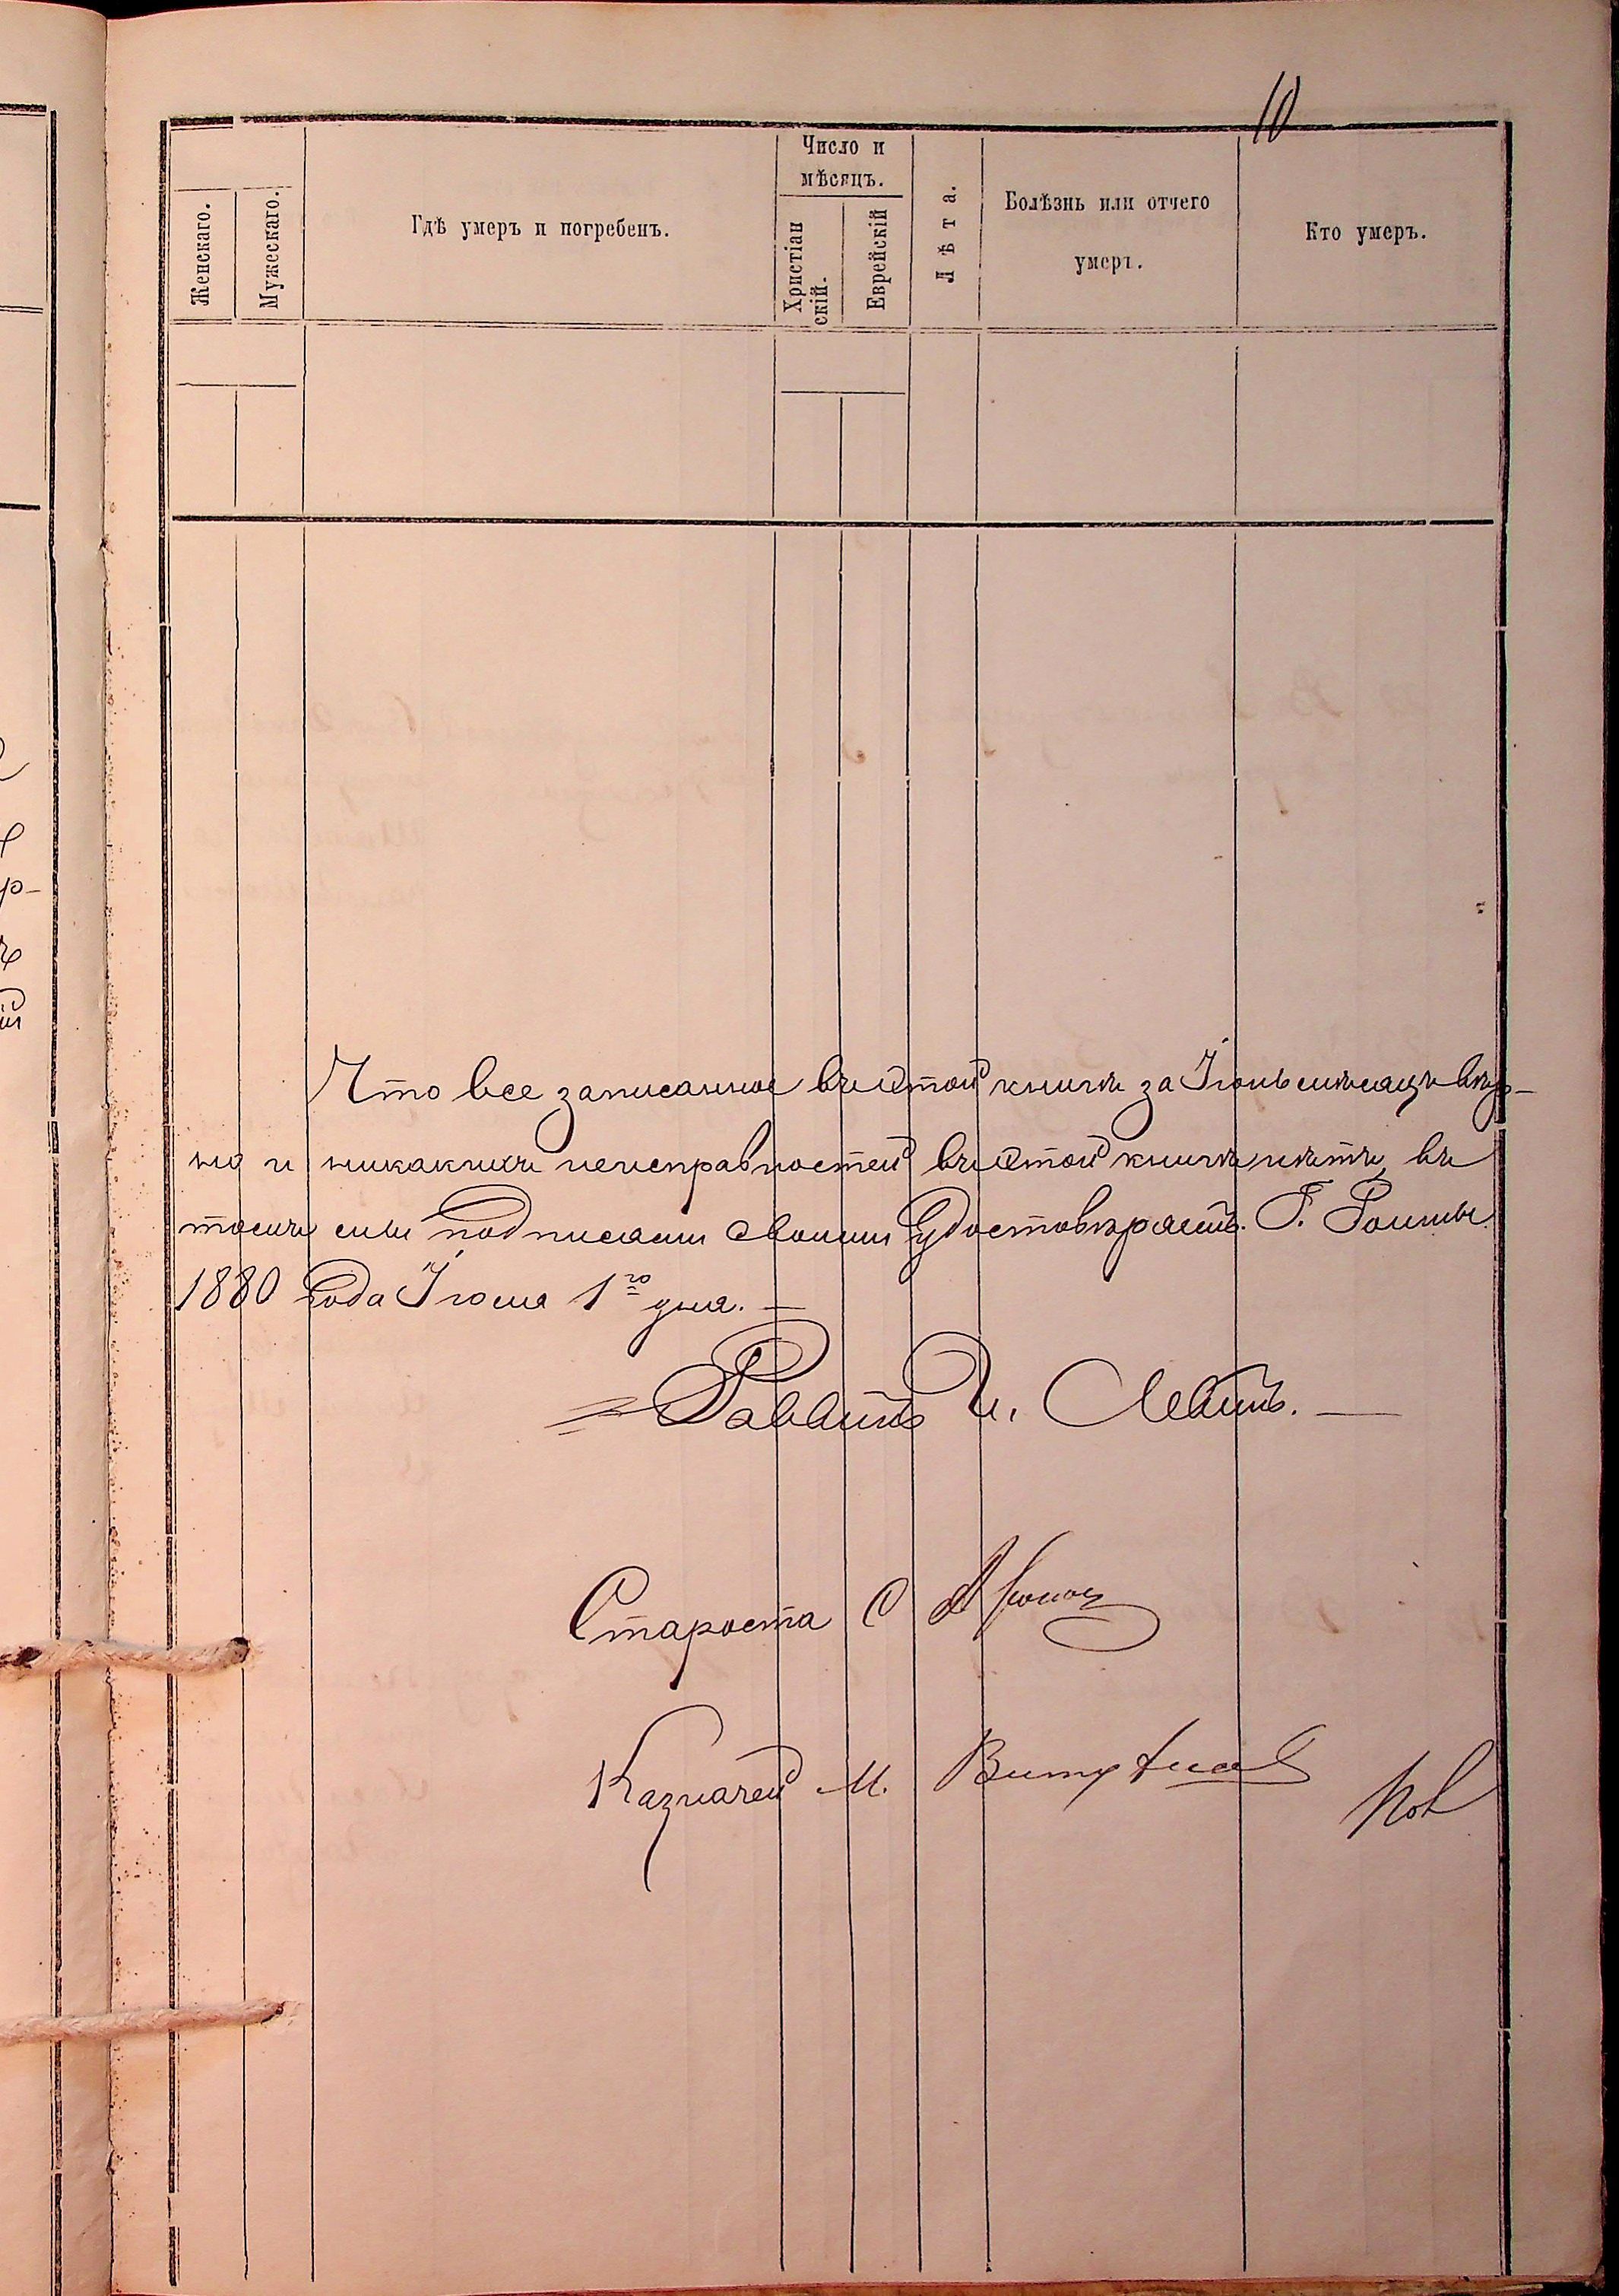 10
Женскаго.
Мужескаго.
Гдѣ умеръ и погребенъ.
Число и
мѣсяцъ.
Христіан
скій.
Еврейскій
Лѣта.
Болѣзнь или отчего
умеръ.
Кто умеръ.
Что все записанное въ этой книгѣ за Іюнь мѣсяцъ вѣр-
но и никакихъ неисправностей въ этой книгѣ нѣтъ, въ
томъ мы подписами своими удостовѣряемъ. Г. Ромны
1880 года Іюля 1го дня. —
Раввинъ И. Левинъ. —
Староста С
Казначей М.